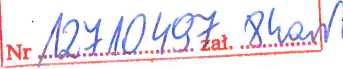 Nr 12710497 zał.